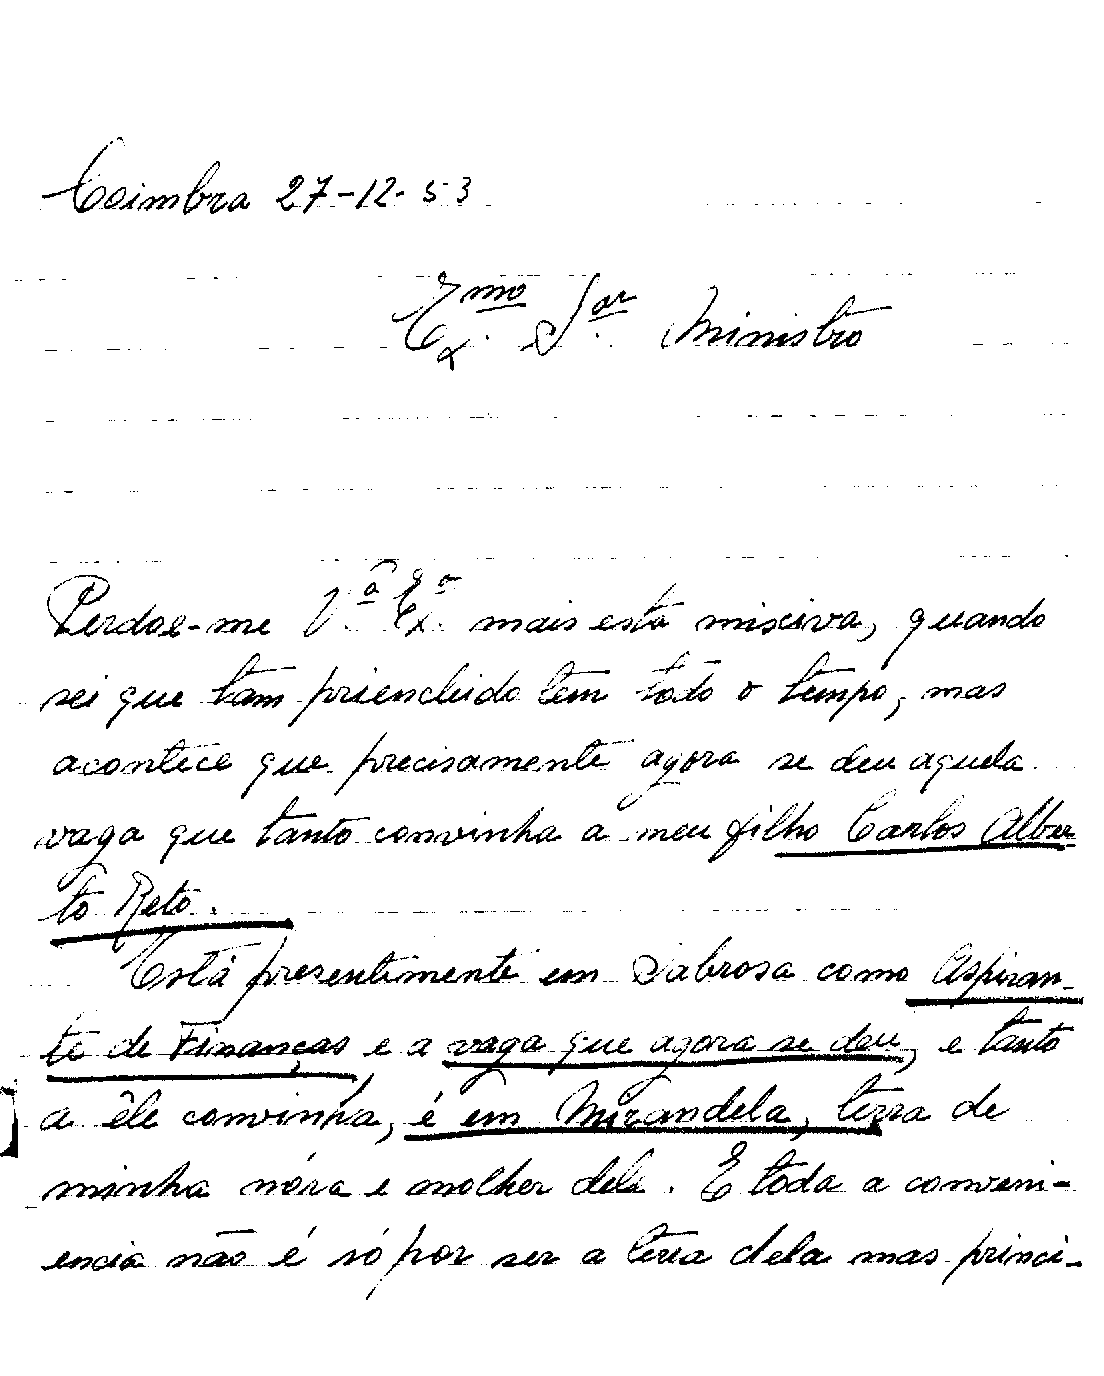 Coimbra 27-12-53
Exmo. Snr. Ministro
Perdoe-me Vª Exª mais esta misciva, quando
sei que tam prienchido tem todo o tempo, mas
acontece que precisamente agora se deu aquela
vaga que tanto convinha a meu filho Carlos Alber
to Reto.
Está presentimente em Sabrosa como Aspiran-
te de Finanças e a vaga que agora se deu, e tanto
a êle convinha, é em Mirandela, terra de
minha nóra e molher dele. E toda a conveni-
encia não é só por ser a terra dela mas princi-